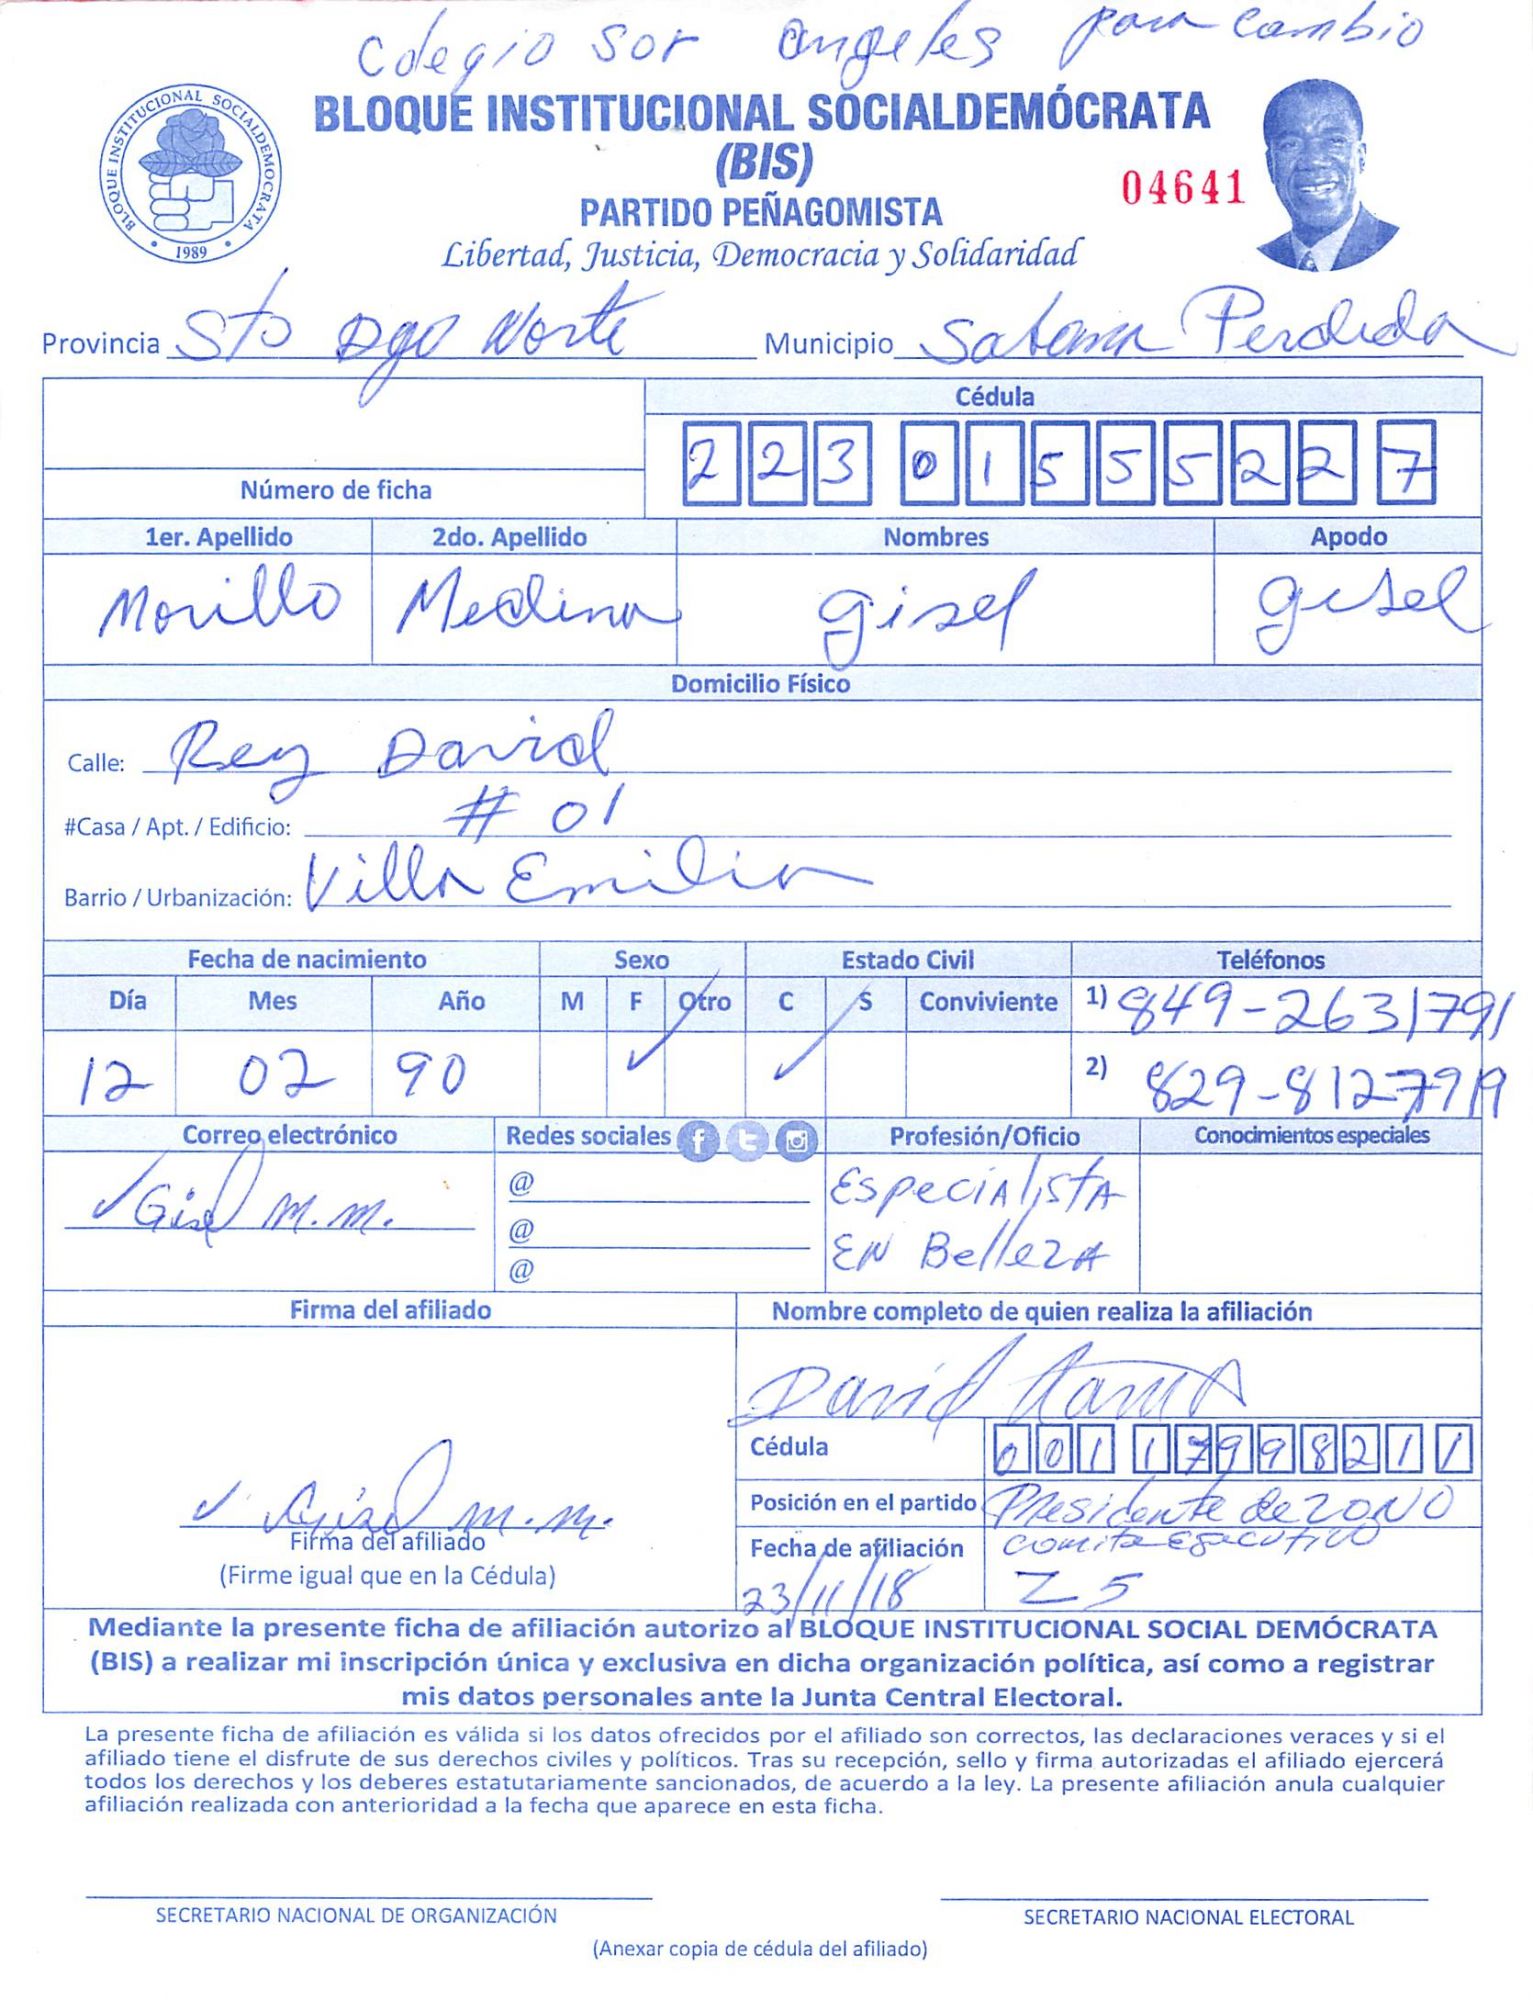 Colegio Sor Angeles para cambio
BLOQUE INSTITUCIONAL SOCIALDEMÓCRATA
BLOQUE INSTITUCIONAL SOCIALDEMOCRATA
1989
(BIS)
04641
PARTIDO PEÑAGOMISTA
Libertad, Justicia, Democracia y Solidaridad
Provincia Sto Dgo Norte Municipio Sabana Perdida
Cédula
223 0155522 7
Número de ficha
1er. Apellido 2do. Apellido Nombres Apodo
Morillo Medina Gisel Gisel
Domicilio Físico
Calle: Rey David
#Casa / Apt. / Edificio: # 01
Barrio / Urbanización: Villa Emilia
Fecha de nacimiento Sexo Estado Civil Teléfonos
Día Mes Año M F Otro C S Conviviente 1) 849-2631791
12 02 90 ✓ ✓ 2) 829-8127919
Correo electrónico Redes sociales Profesión/Oficio Conocimientos especiales
✓ Gisel m.m. @ Especialista
@ EN Belleza
@
Firma del afiliado Nombre completo de quien realiza la afiliación
David
Cédula 001 1799821 1
✓ Gisel m.m. Posición en el partido Presidente de zono
Firma del afiliado Fecha de afiliación comite Ejecutivo
(Firme igual que en la Cédula) 23/11/18 Z 5
Mediante la presente ficha de afiliación autorizo al BLOQUE INSTITUCIONAL SOCIAL DEMÓCRATA
(BIS) a realizar mi inscripción única y exclusiva en dicha organización política, así como a registrar
mis datos personales ante la Junta Central Electoral.
La presente ficha de afiliación es válida si los datos ofrecidos por el afiliado son correctos, las declaraciones veraces y si el
afiliado tiene el disfrute de sus derechos civiles y políticos. Tras su recepción, sello y firma autorizadas el afiliado ejercerá
todos los derechos y los deberes estatutariamente sancionados, de acuerdo a la ley. La presente afiliación anula cualquier
afiliación realizada con anterioridad a la fecha que aparece en esta ficha.
SECRETARIO NACIONAL DE ORGANIZACIÓN SECRETARIO NACIONAL ELECTORAL
(Anexar copia de cédula del afiliado)